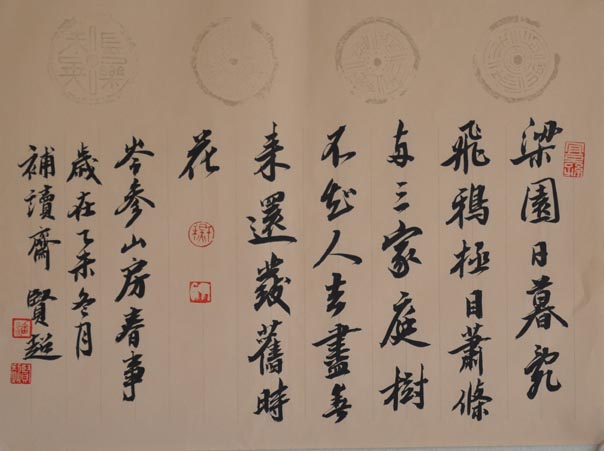 梁園日暮亂
飛鴉極目蕭條
两三家庭樹
不知人去盡春
来還發舊時
花
岑參山房春事
歲在乙未冬月
補讀齋賢超